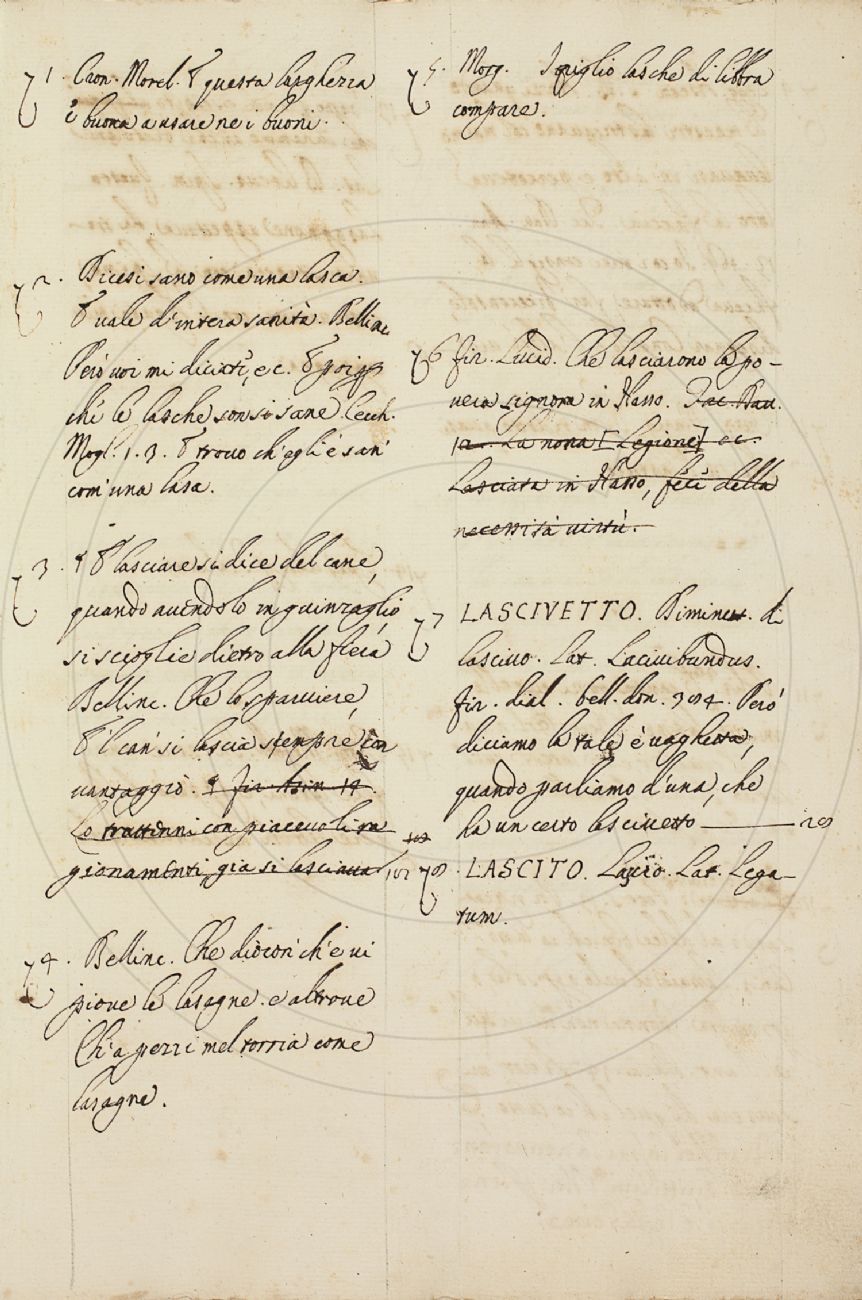 1. Cron. Morel. E questa larghezza
è buona a usare ne i buoni.
2. Dicesi sano come una lasca.
E vale d'intera sanità. Bellinc.
Però voi mi diciati, ec. E poi
chè le lasche son sì sane Cecch.
Mogl. 1. 3. E trovo ch'egli è san'
com'una lasa.
3. E lasciare si dice del cane,
quando avendolo in guinzaglio
si scioglie dietro alla fiera
Bellinc. Che lo sparviere,
E 'l can' si lascia sempre con
vantaggio. Fir. Asin. 14.
Lo trattenni con piacevoli ra
gionamenti, gia si lasciava 102
4. Bellinc. Che dioconch'e vi
piove le lasagne. e altrove
Ch'a pezzi mel torria come
lasagne.
5. Morg. I piglio lasche di libbra
compare.
6 Fir. Lucid. Che lasciarono la po-
vera signora in Nasso. Tac. Dav.
12. La nona [Legione] ec.
Lasciata in Nasso, feci della
necessità virtù.
7 LASCIVETTO. Diminut. di
lascivo. Lat. Lacivibundus.
Fir. dial. bell. don. 394. Però
diciamo la tale è vaghetta,
quando parliamo d'una, che
ha un certo lascivetto
LASCITO. Lascio. Lat. Lega-
tum.